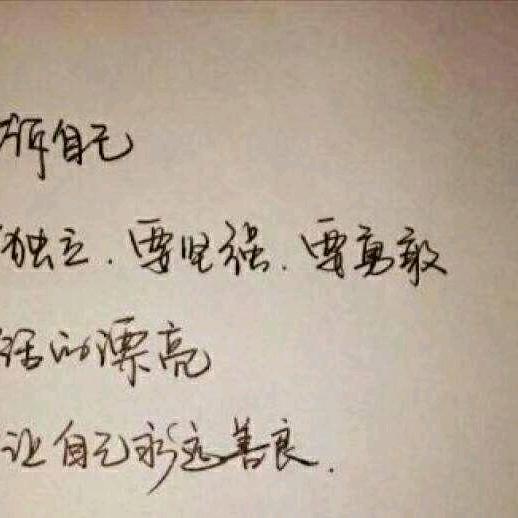 自己
独立.要坚强.要勇敢
活的漂亮
让自己永远善良.